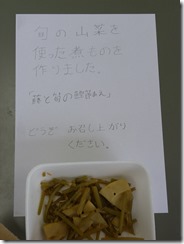 旬の山菜を
使った煮ものを
作りました。
「蕗と筍の
どうぞ お召し上がり
ください。